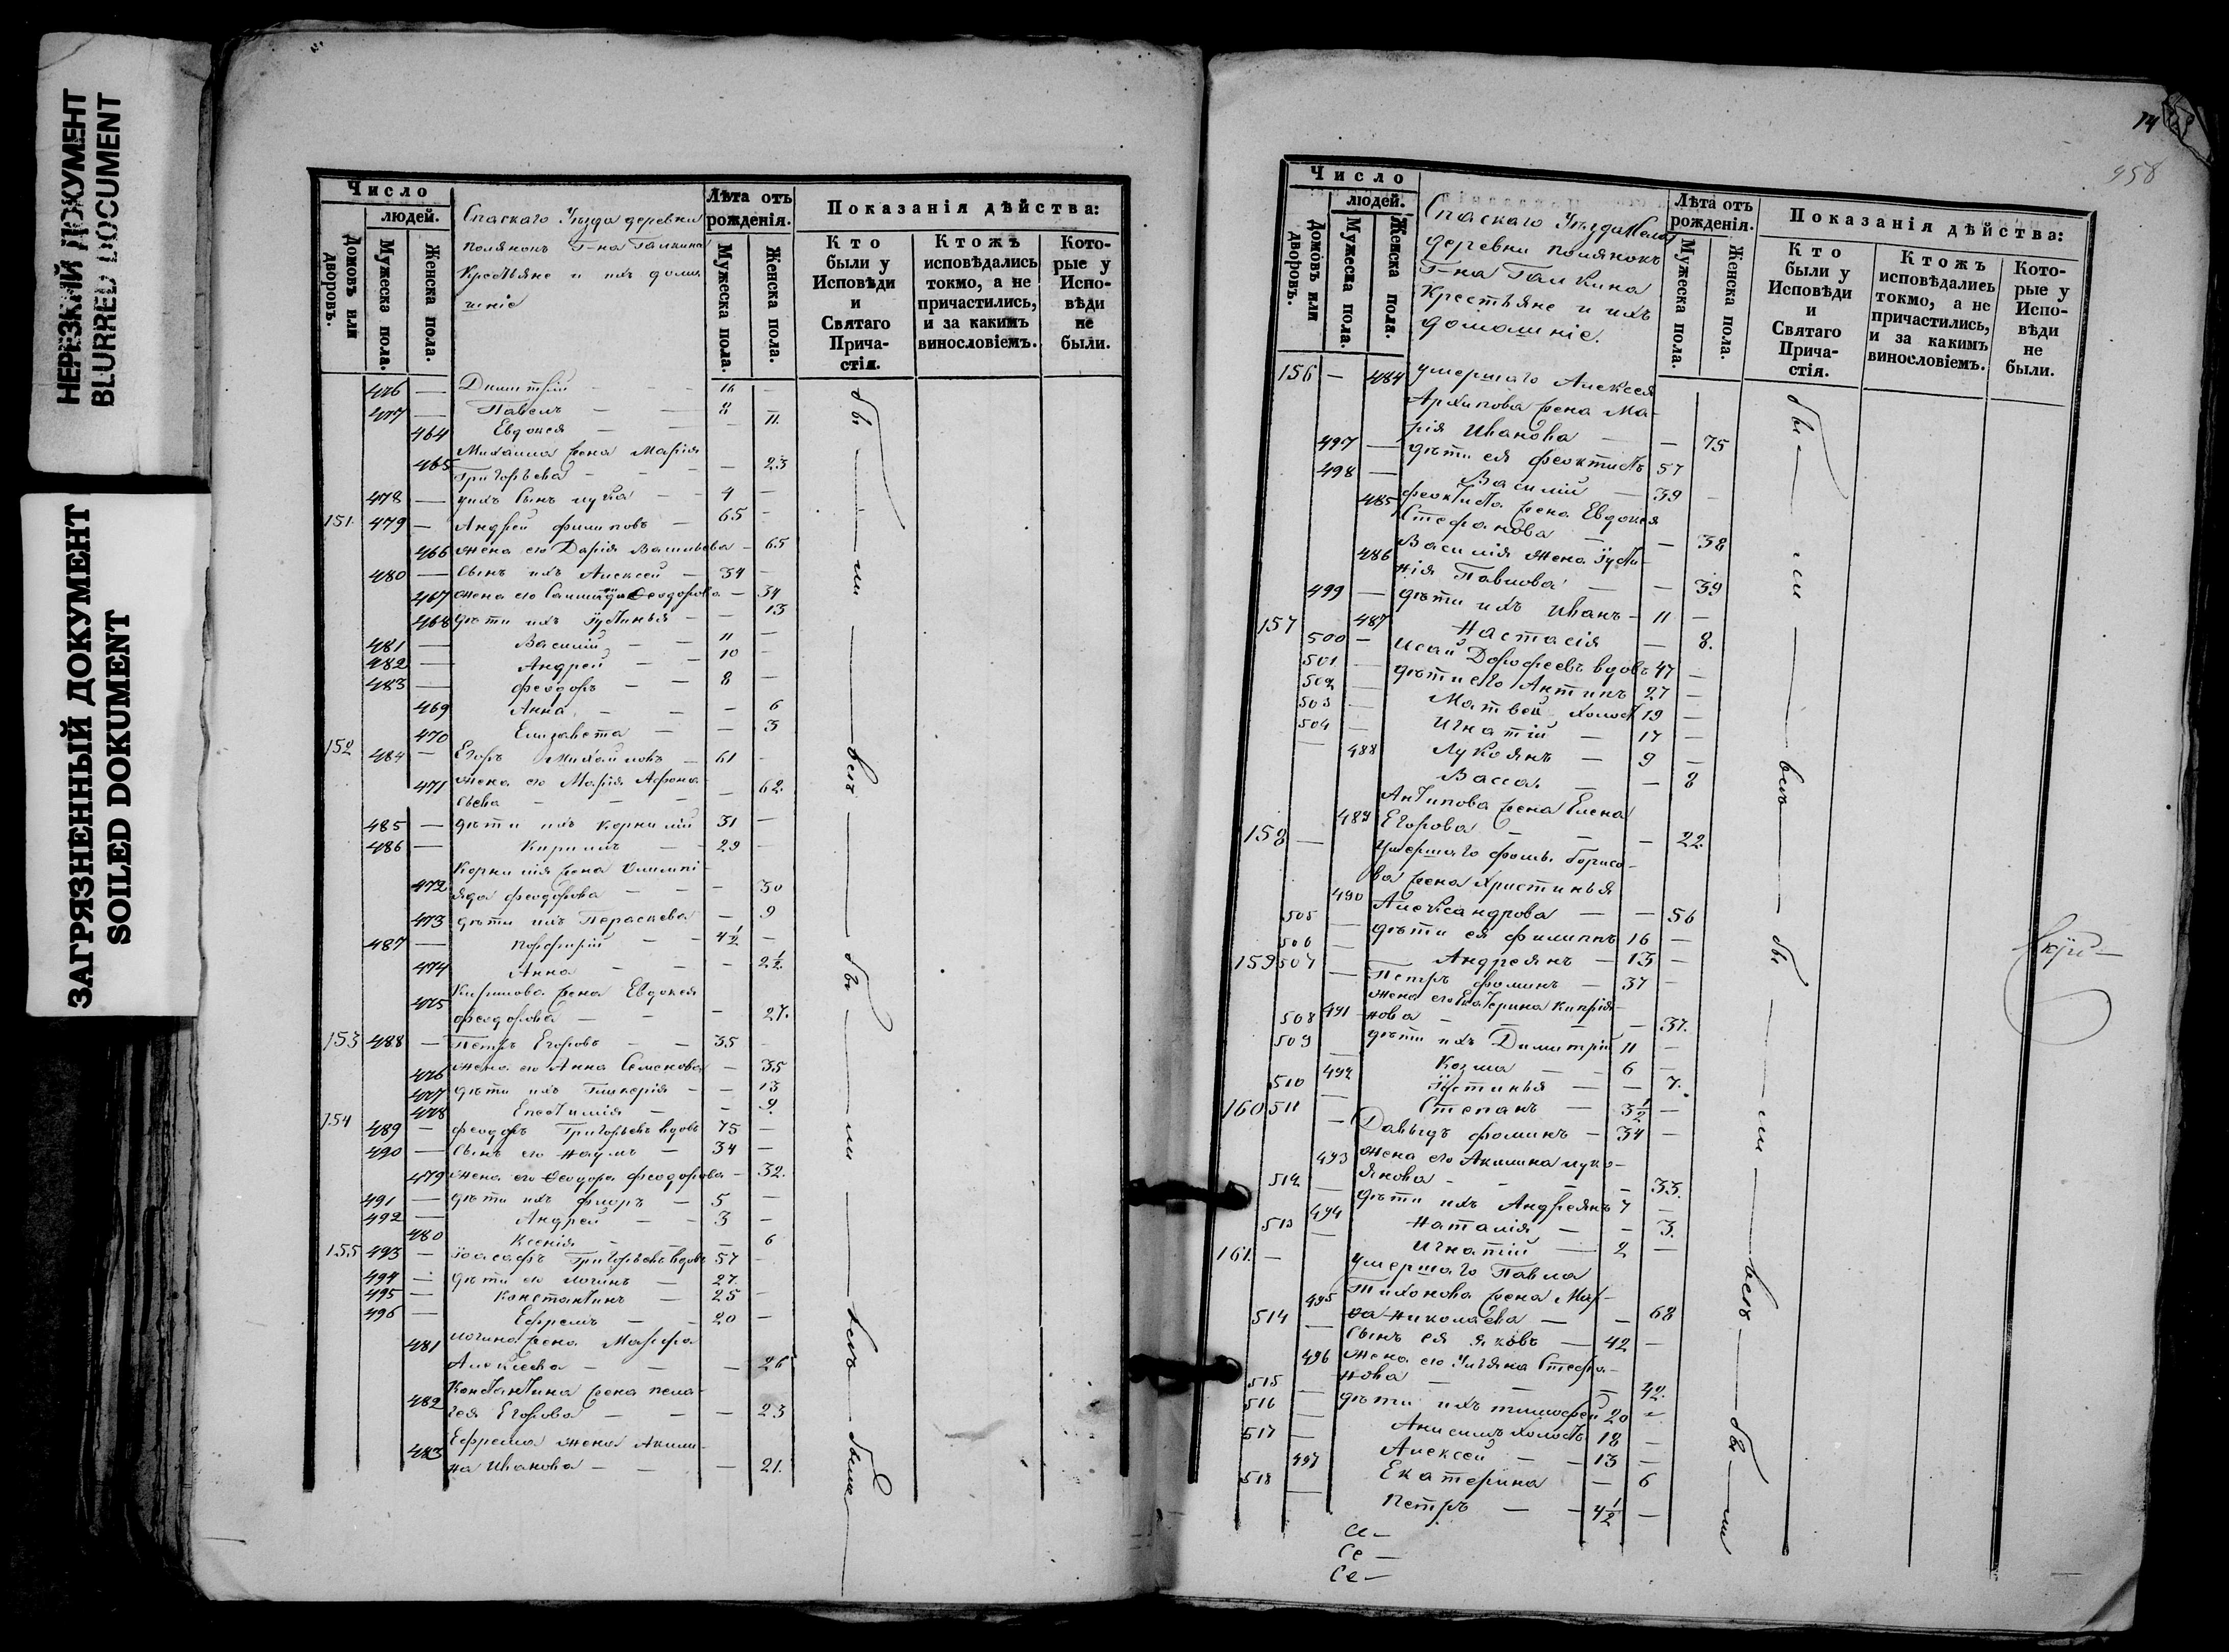 НЕРЕЗКИЙ ДОКУМЕНТ
BLURRED DOCUMENT
ЗАГРЯЗНЕННЫЙ ДОКУМЕНТ
SOILED DOKUMENT
Число
людей.
Домовъ или дворовъ.
Мужеска пола.
Женска пола.
Спаскаго Уѣзда деревни
полянокъ Г-на Галкина
Крестьяне и ихъ домаш
ніе
Лѣта отъ
рожденія.
Мужеска пола.
Женска пола.
Показанія дѣйства:
Кто
были у
Исповѣди
и
Святаго
Прича-
стія.
Ктожъ
исповѣдались
токмо, а не
причастились,
и за какимъ
винословіемъ.
Кото-
рые у
Испо-
вѣди
не
были.
476 — Димитрій — —
477 — Павелъ — — 8 —
464 Евдокея — — — 11.
Михаила жена Марія
465 Григорьева — — — 23
478 — у нихъ сынъ лука — — 4 —
151. 479 — Андрей филиповъ — 65 —
466 жена его Дарія Васильева — 65
480 — сынъ ихъ Алексей — 34 —
467 жена его Феодорова — 34
468 дѣти ихъ Іустинья — — 13
481 — Василій — — 11 —
482 — Андрей — — 10 —
483 — феодоръ — — 8 —
469 Анна — — — 6
470 Елизавета — — 3
152 484 — Егоръ Михайловъ — 61 —
471 жена его Марія Афона-
сьева — — — — 62.
485 — дѣти ихъ Корнилій 31 —
486 — Кирилъ — — 29 —
Корнилія жена Олимпі-
472 яда феодорова — — — 30
473 дѣти ихъ Параскева — 9
487 — Порфирій — — 4½ —
474 Анна — — — 2½.
Кирилова жена Евдокея
475 феодорова — — — 27.
153 488 — Петръ Егоровъ — — 35 —
476 жена его Анна Семенова — 35
477 дѣти ихъ Гликерія — — 13
478 Епестимія — — 9.
154 489 — феодоръ Григорьевъ вдовъ 75 —
490 — сынъ его Наумъ — 34 —
479 жена его Феодора феодорова — 32.
491 — дѣти ихъ флоръ — 5 —
492 — Андрей — — 3 —
480 Ксенія — — 6
155 493 — Іоасафъ Григорьевъ вдовъ 57 —
494 — дѣти его логинъ — 27. —
495 — Константинъ — 25 —
496 — Ефремъ — — 20 —
481 логина жена Марфа
Алексѣева — — — 26
Константина жена пела-
482 гея Егорова — — — 23
Ефрема жена Акили-
483 на Иванова — — — 21.
бы — ли — всѣ — бы — ли — всѣ — были
14
958
Число
людей.
Домовъ или дворовъ.
Мужеска пола.
Женска пола.
Спаскаго Уѣзда
деревни полянокъ
Г-на Галкина
Крестьяне и ихъ
домашніе.
Лѣта отъ
рожденія.
Мужеска пола.
Женска пола.
Показанія дѣйства:
Кто
были у
Исповѣди
и
Святаго
Прича-
стія.
Ктожъ
исповѣдались
токмо, а не
причастились,
и за какимъ
винословіемъ.
Кото-
рые у
Испо-
вѣди
не
были.
156 — 484 умершаго Алексея
Архипова жена Ма-
рія Иванова — — 75
497 — дѣти ея феоктистъ 57
498 — Василій — 39 —
485 феоктиста жена Евдокея
Стефанова — — 38
486 Василія жена Іусти-
нія Павлова — — 39
499 — дѣти ихъ Иванъ — 11 —
487 Настасія — 8.
157 500 — Исаи Дорофеевъ вдовъ 47 —
501 — дѣти его Антипъ 27 —
502 — Матвей холост 19 —
503 — Игнатій — 17 —
504 — Лукоянъ — 9 —
488 Васса — — 8
Антипова жена Елена
489 Егорова — — — 22.
158 — умершаго фомы Борисо-
ва жена Христинья
490 Александрова — — 56
505 — дѣти ея филиппъ 16 —
506 — Андреянъ — 13 —
159 507 — Петръ фоминъ — 37 —
жена его Екатерина Кипрія-
491 нова — — — — 37.
508 — дѣти ихъ Димитрій 11 —
509 — Козма — — 6 —
492 Іустинья — — 7.
510 — Степанъ — 3½ —
160 511 — Давыдъ фоминъ — 34 —
жена его Акилина луко-
493 янова — — — — 33.
512 — дѣти ихъ Андреянъ 7 —
494 Наталія — — 3.
513 — Игнатій — 2 —
161. — умершаго Павла
Тихонова жена Мар-
495 ѳа Николаева — — 68
514 — сынъ ея яковъ — 42 —
жена его Ульяна Стефа-
496 нова — — — 42.
515 — дѣти ихъ тимофей 20 —
516 — Анисимъ холостъ 18 —
517 — Алексей — — 13 —
497 Екатерина — 6
518 — Петръ — — 4½ —
бы — ли — всѣ — бы — ли — всѣ — бы — ли
Се —
Се —